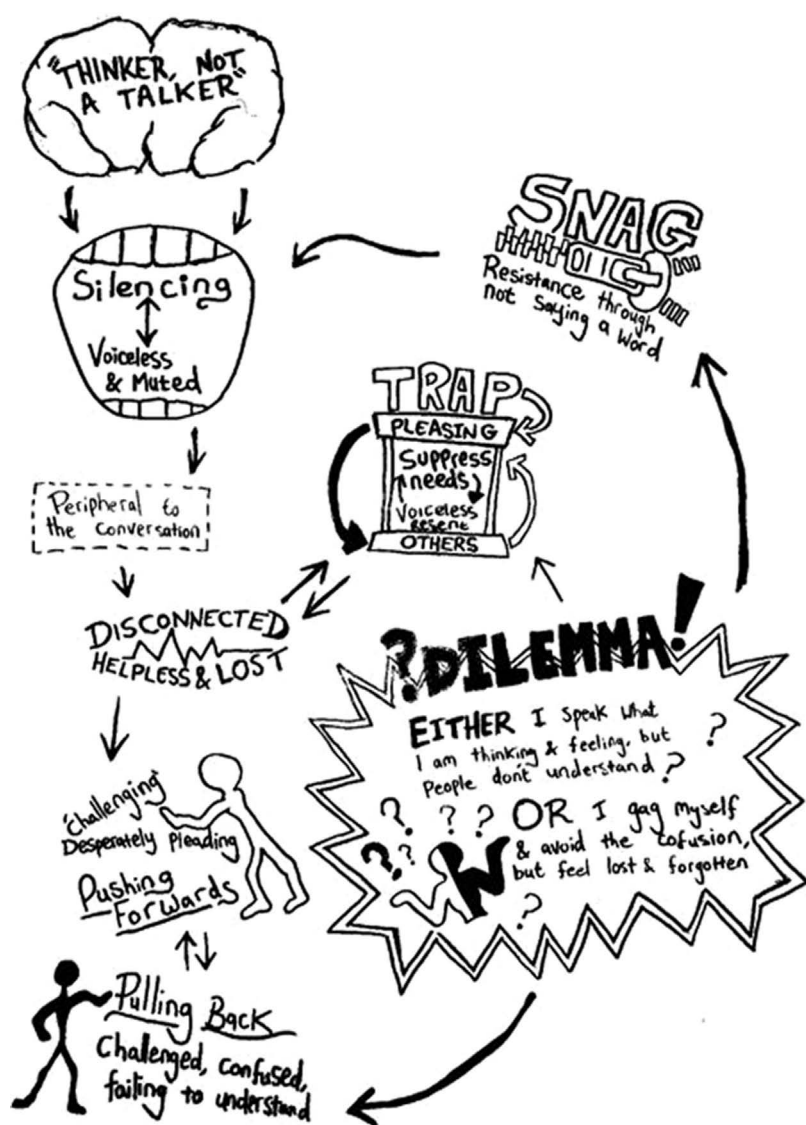 "THINKER, NOT
A TALKER"
Silencing
Voiceless
& Muted
Peripheral to
the conversation
DISCONNECTED
HELPLESS & LOST
'Challenging'
Desperately Pleading
Pushing
Forwards
Pulling Back
Challenged, confused,
failing to understand
SNAG
Resistance through
not saying a word
TRAP
PLEASING
Suppress
needs
Voiceless
Resent
OTHERS
? DILEMMA!
EITHER I speak what
I am thinking & feeling, but
People don't understand ? ?
? ? ? OR I gag myself
?? & avoid the cofusion,
but feel lost & forgotten
?